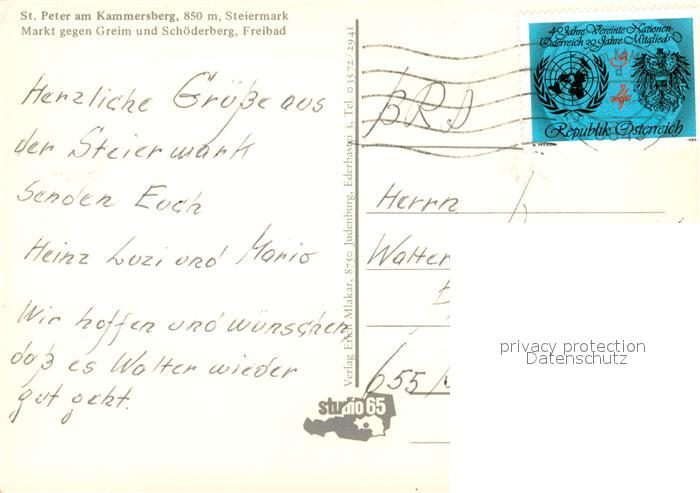 St. Peter am Kammersberg, 850 m, Steiermark
Markt gegen Greim und Schöderberg, Freibad
Herzliche Grüße aus
der Steiermark
Senden Euch
Heinz Luzi und Mario
Wir hoffen und wünschen,
daß es Walter wieder
gut geht.
Verlag Erich Mlakar, 8750 Judenburg, Ederbastei 1, Tel. 03572/2941
studio 65
40 Jahre Vereinte Nationen-
Österreich 30 Jahre Mitglied
Republik Österreich
BRD
Herrn
Walter
655
privacy protection
Datenschutz